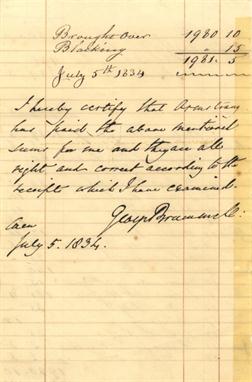 Brought over 1980 10
Blacking " 15
1981. 5
July 5th 1834
I hereby certify that Armstrong
has paid the above mentioned
sums for me and they are all
right and correct according to the
receipts which I have examined.
George Brummell
Caen
July 5. 1834.